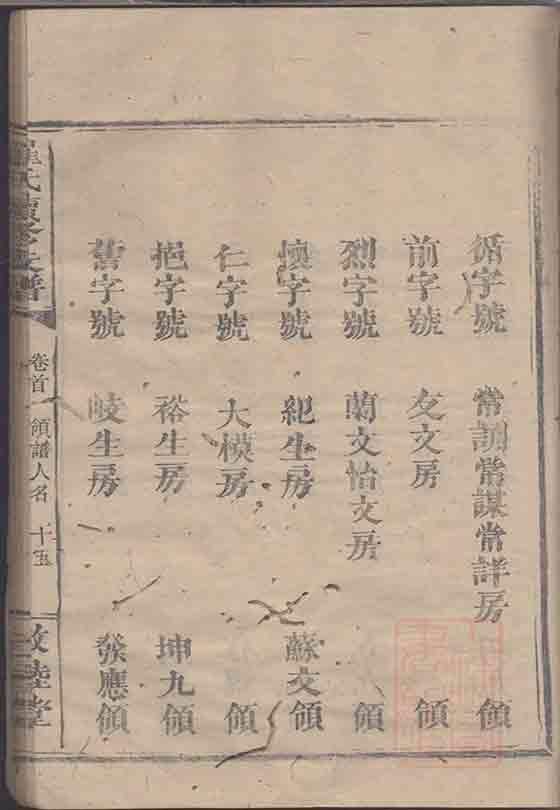 循字號 常訓常謀常詳房 領
前字號 友文房 領
烈字號 蘭文怡文房 領
懷字號 紀生房 蘇文領
仁字號 大模房 領
挹字號 裕生房 坤九領
舊字號 岐生房 發應領
氏續修支譜 卷首 領譜人名 十五 敦睦堂